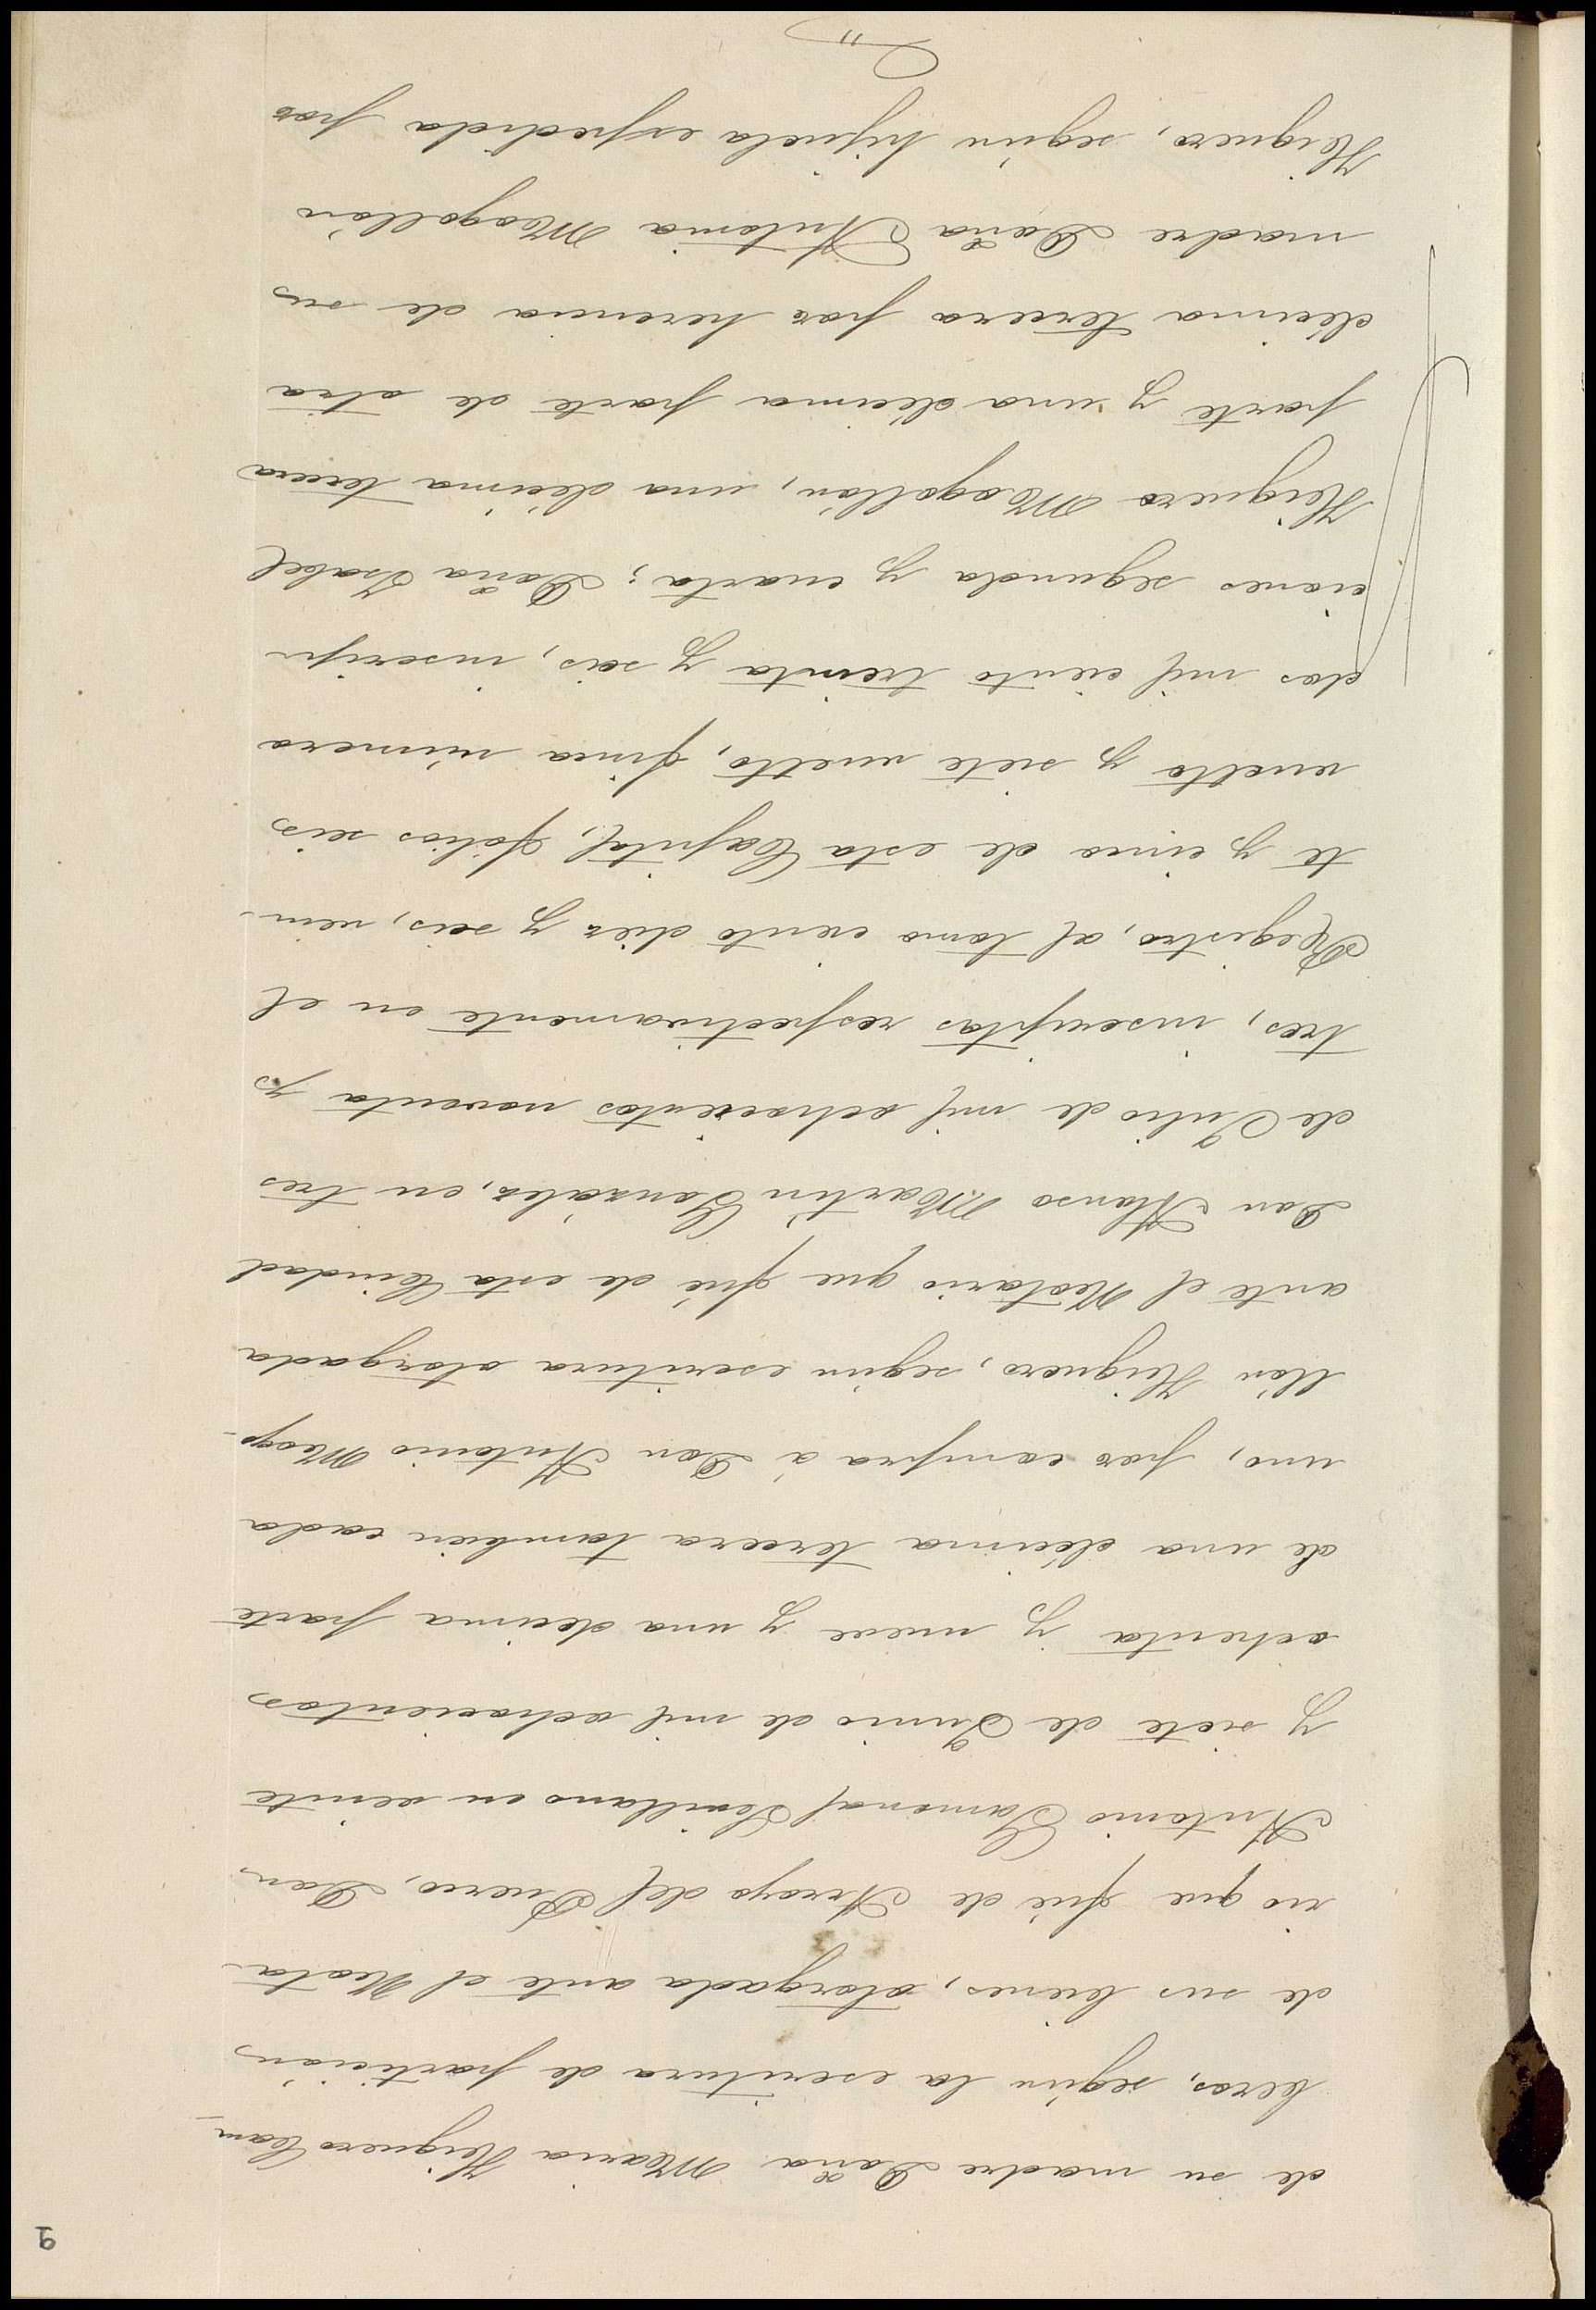 9
de su madre Doña Maria Higuero Cam-
beros, según la escritura de partición
de sus bienes, otorgada ante el Nota-
rio que fué de Arroyo del Puerco, Don
Antonio Gamonal Sevillano en veinte
y siete de Junio de mil ochocientos
ochenta y nueve y una décima parte
de una décima tercera tambien cada
uno, por compra á Don Antonio Mogo-
llón Higuero, según escritura otorgada
ante el Notario que fué de esta Ciudad
Don Alonso Martín González, en tres
de Julio de mil ochocientos noventa y
tres, inscriptas respectivamente en el
Registro, al tomo ciento diez y seis, vein-
te y cinco de esta Capital, folios seis
vuelto y siete vuelto, finca número
dos mil ciento treinta y seis, inscrip-
ciones segunda y cuarta; Doña Isabel
Higuero Mogollón, una décima tercera
parte y una décima parte de otra
décima tercera por herencia de su
madre Doña Antonia Mogollón
Higuero, según hijuela expedida por